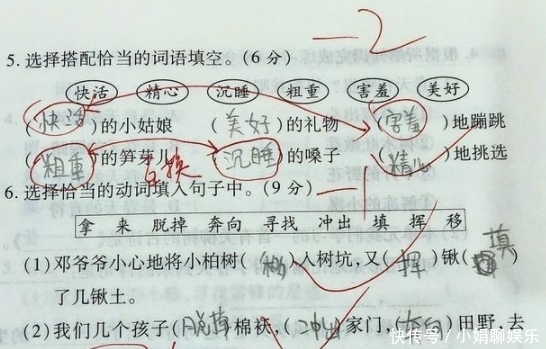 -2
5.选择搭配恰当的词语填空。(6分)
快活 精心 沉睡 粗重 害羞 美好
(快活)的小姑娘 (美好)的礼物 (害羞)地蹦跳
(粗重)的笋芽儿 互换 (沉睡)的嗓子 (精心)地挑选
6.选择恰当的动词填入句子中。(9分)
拿 来 脱掉 奔向 寻找 冲出 填 挥 移
(1)邓爷爷小心地将小柏树(移)入树坑,又(挥)锹(填)
了几锹土。
(2)我们几个孩子(脱掉)棉袄,(冲出)家门,(奔向)田野,去
快传号/小娟聊娱乐